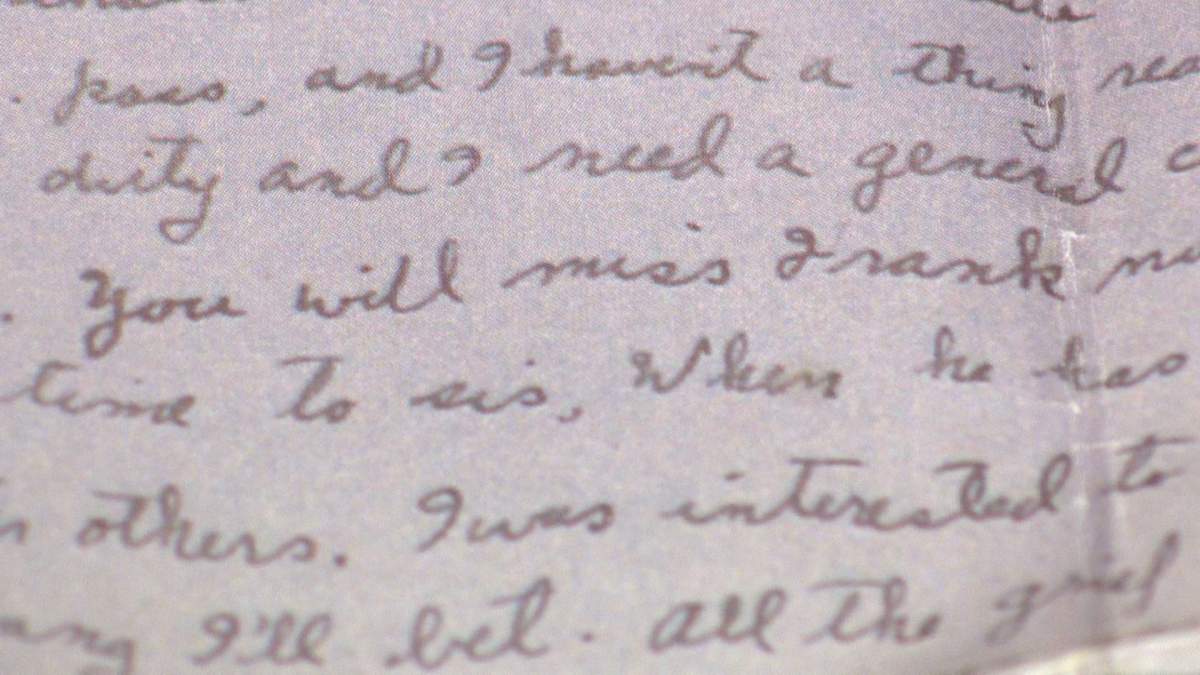 . pass, and I haven't a thing rea
dirty and I need a general c
. You will miss Frank
time to sis, When he has
others. I was interested to
I'll bet. All the grief